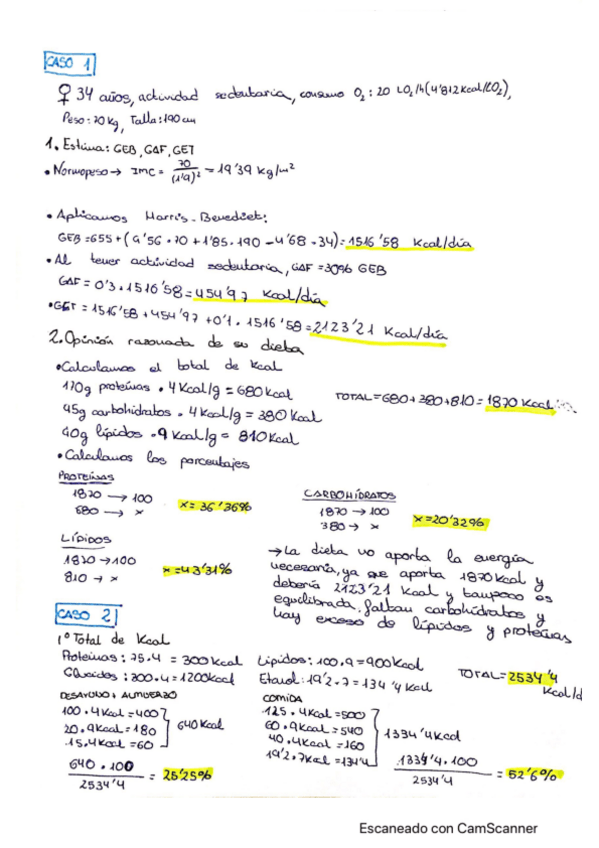 CASO 1
♀ 34 años, actividad sedentaria, consumo O₂: 20 LO₂/h (4'812 Kcal/LO₂),
Peso: 70 Kg, Talla: 190 cm
1. Estima: GEB, GAF, GET
• Normopeso → IMC = 70/(1'9)² = 19'39 Kg/m²
• Aplicamos Harris-Benedict:
GEB = 655 + (9'56 · 70 + 1'85 · 190 - 4'68 · 34) = 1516'58 Kcal/día
• Al tener actividad sedentaria, GAF = 30% GEB
GAF = 0'3 · 1516'58 = 454'97 Kcal/día
• GET = 1516'58 + 454'97 + 0'1 · 1516'58 = 2123'21 Kcal/día
2. Opinión razonada de su dieta
• Calculamos el total de Kcal
170g proteínas · 4 Kcal/g = 680 Kcal
TOTAL = 680 + 380 + 810 = 1870 Kcal
45g carbohidratos · 4 Kcal/g = 380 Kcal
40g lípidos · 9 Kcal/g = 810 Kcal
• Calculamos los porcentajes
PROTEÍNAS
1870 → 100
680 → x
x = 36'36%
CARBOHIDRATOS
1870 → 100
380 → x
x = 20'32%
LÍPIDOS
1870 → 100
810 → x
x = 43'31%
→ La dieta no aporta la energía
necesaria, ya que aporta 1870 Kcal y
debería 2123'21 Kcal y tampoco es
equilibrada, faltan carbohidratos y
hay exceso de lípidos y proteínas
CASO 2
1º Total de Kcal
Proteínas: 75 · 4 = 300 Kcal
Lípidos: 100 · 9 = 900 Kcal
Glúcidos: 300 · 4 = 1200 Kcal
Etanol: 19'2 · 7 = 134'4 Kcal
TOTAL = 2534'4
Kcal/d
DESAYUNO + ALMUERZO
100 · 4 Kcal = 400
20 · 9 Kcal = 180
15 · 4 Kcal = 60
640 Kcal
640 · 100 / 2534'4 = 25'25%
COMIDA
125 · 4 Kcal = 500
60 · 9 Kcal = 540
40 · 4 Kcal = 160
19'2 · 7 Kcal = 134'4
1334'4 Kcal
1334'4 · 100 / 2534'4 = 52'6%
Escaneado con CamScanner